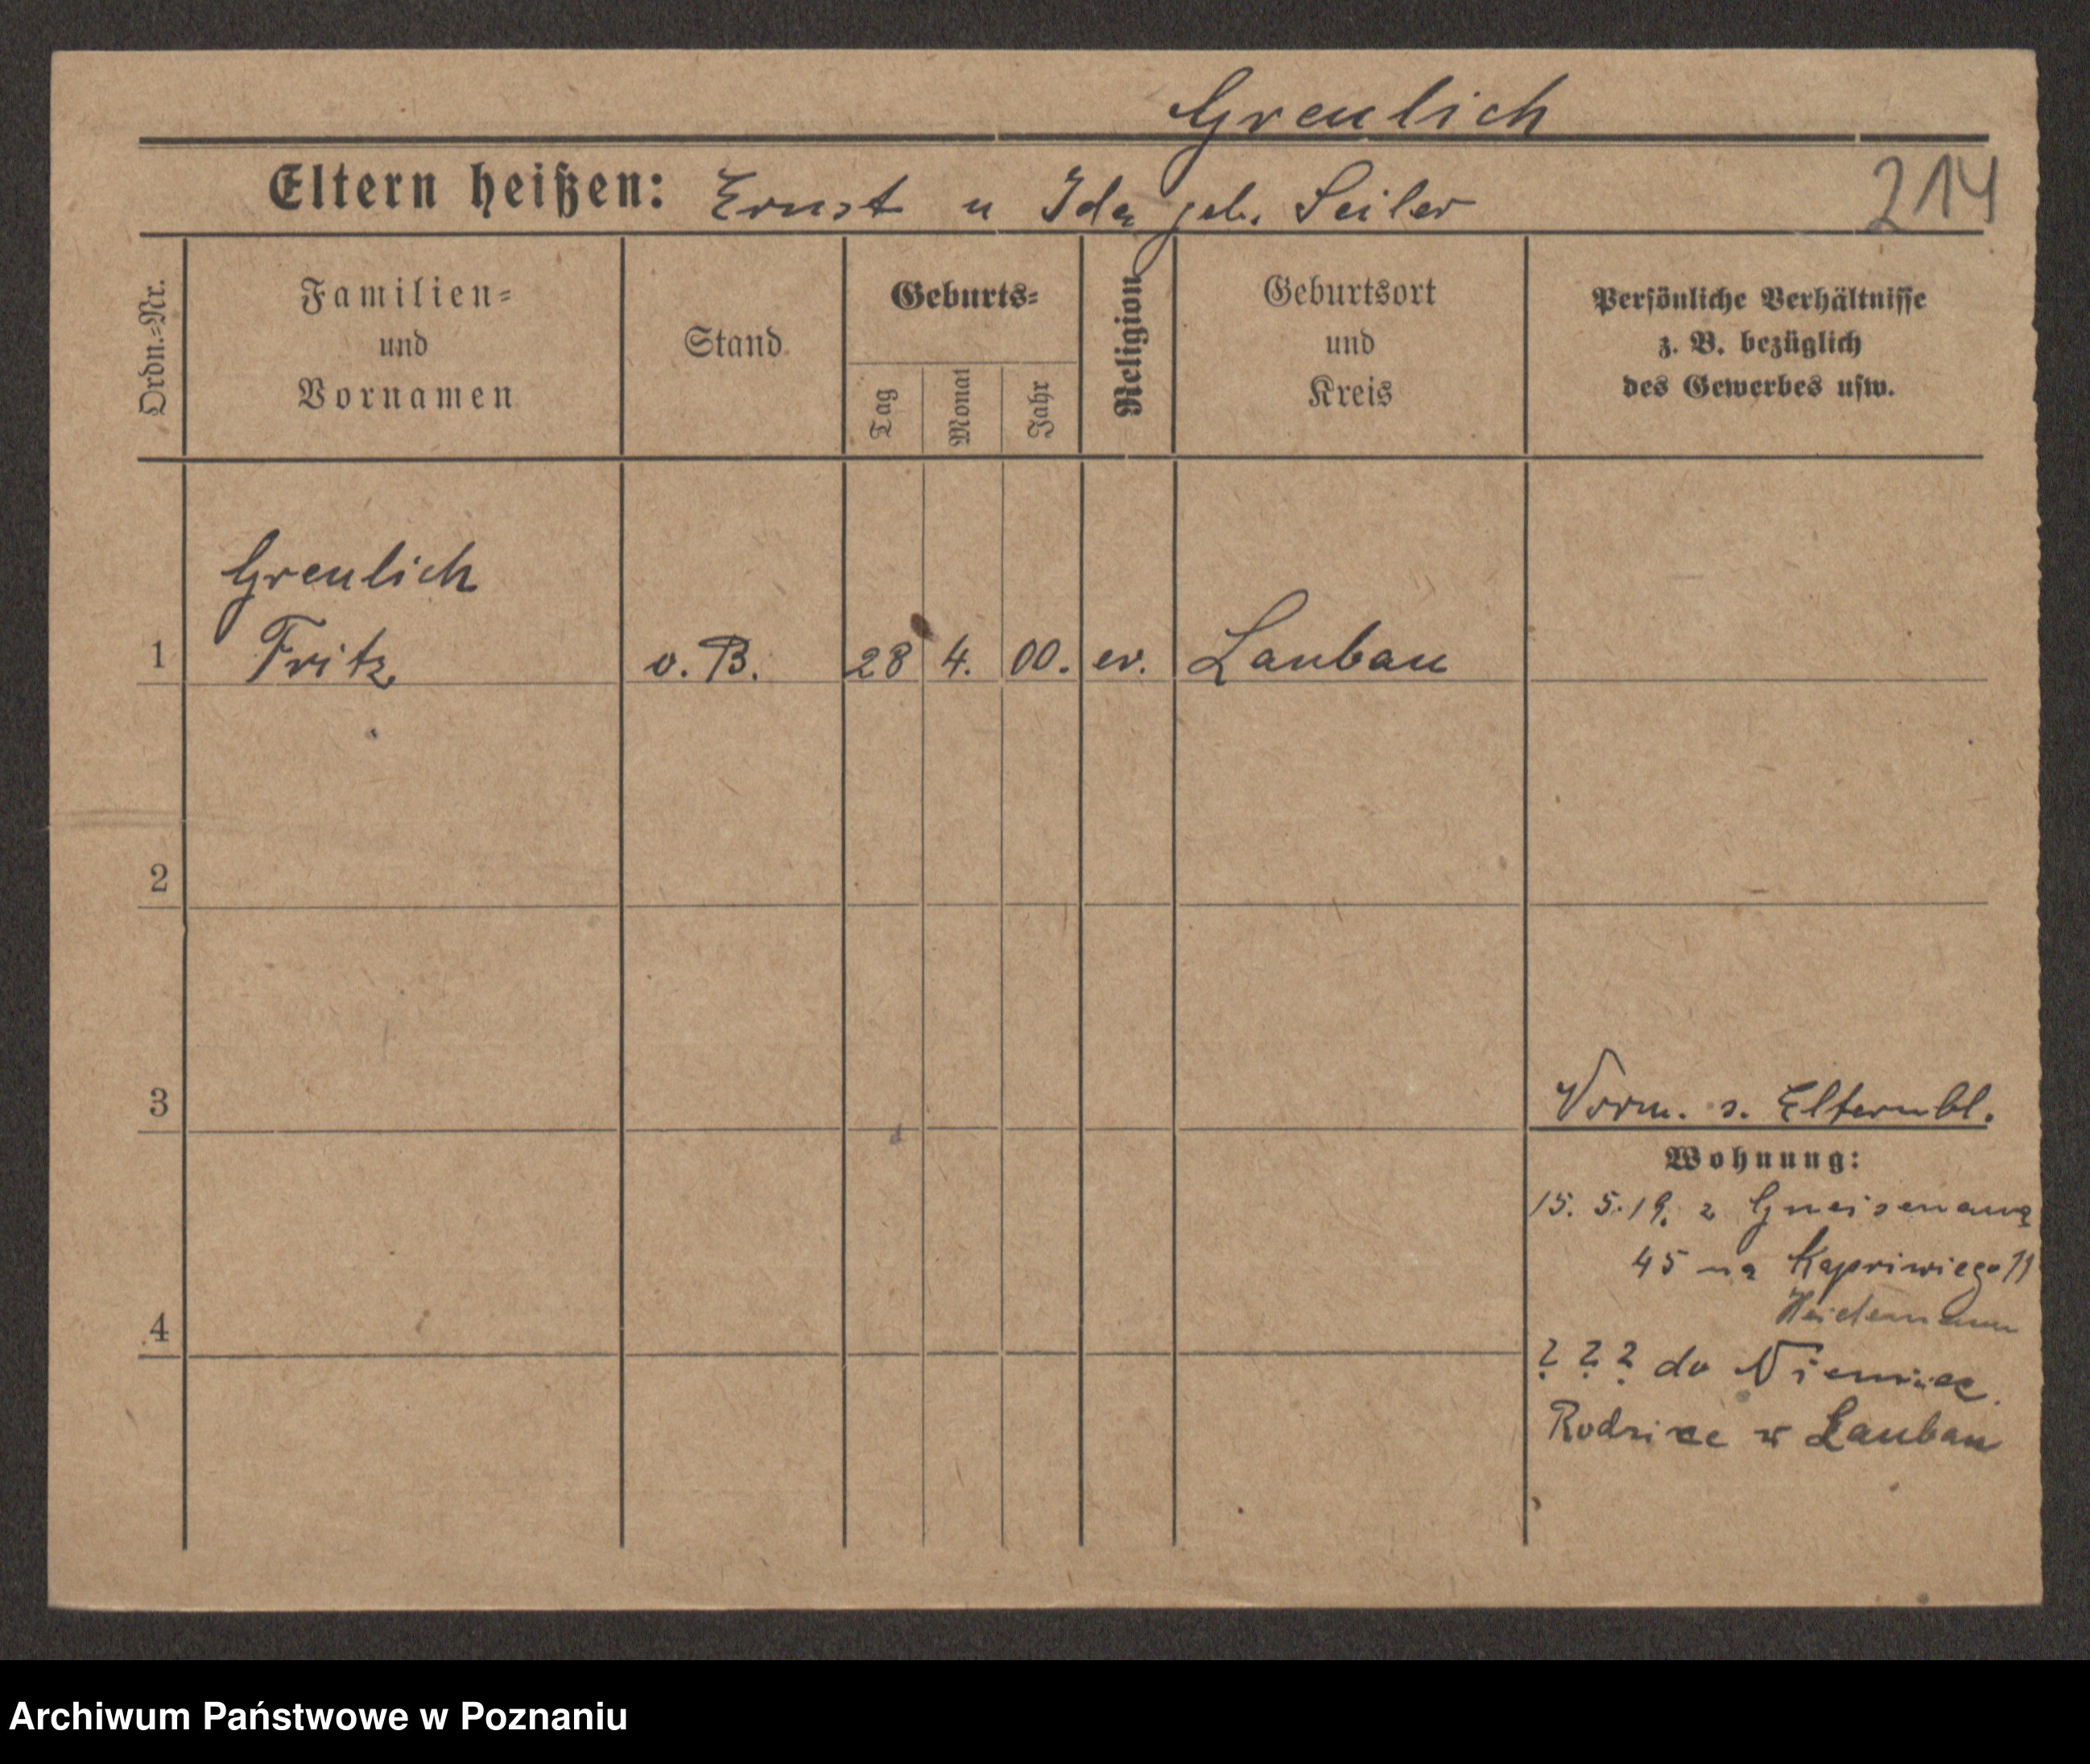 Greulich
Eltern heißen: Ernst u Ida geb. Seiler
214
Ordn.=Nr.
Familien=
und
Vornamen
Stand
Geburts=
Tag
Monat
Jahr
Religion
Geburtsort
und
Kreis
Persönliche Verhältnisse
z. B. bezüglich
des Gewerbes usw.
Greulich
1 Fritz o. B. 28 4. 00. ev. Lauban
2
3
Vorm. s. Elternbl.
Wohnung:
15. 5. 19. z Gneisenaua
45 na Kapriwiego 11
Heidemann
4
? ? ? do Niemiec
Rodzice w Lauban
Archiwum Państwowe w Poznaniu